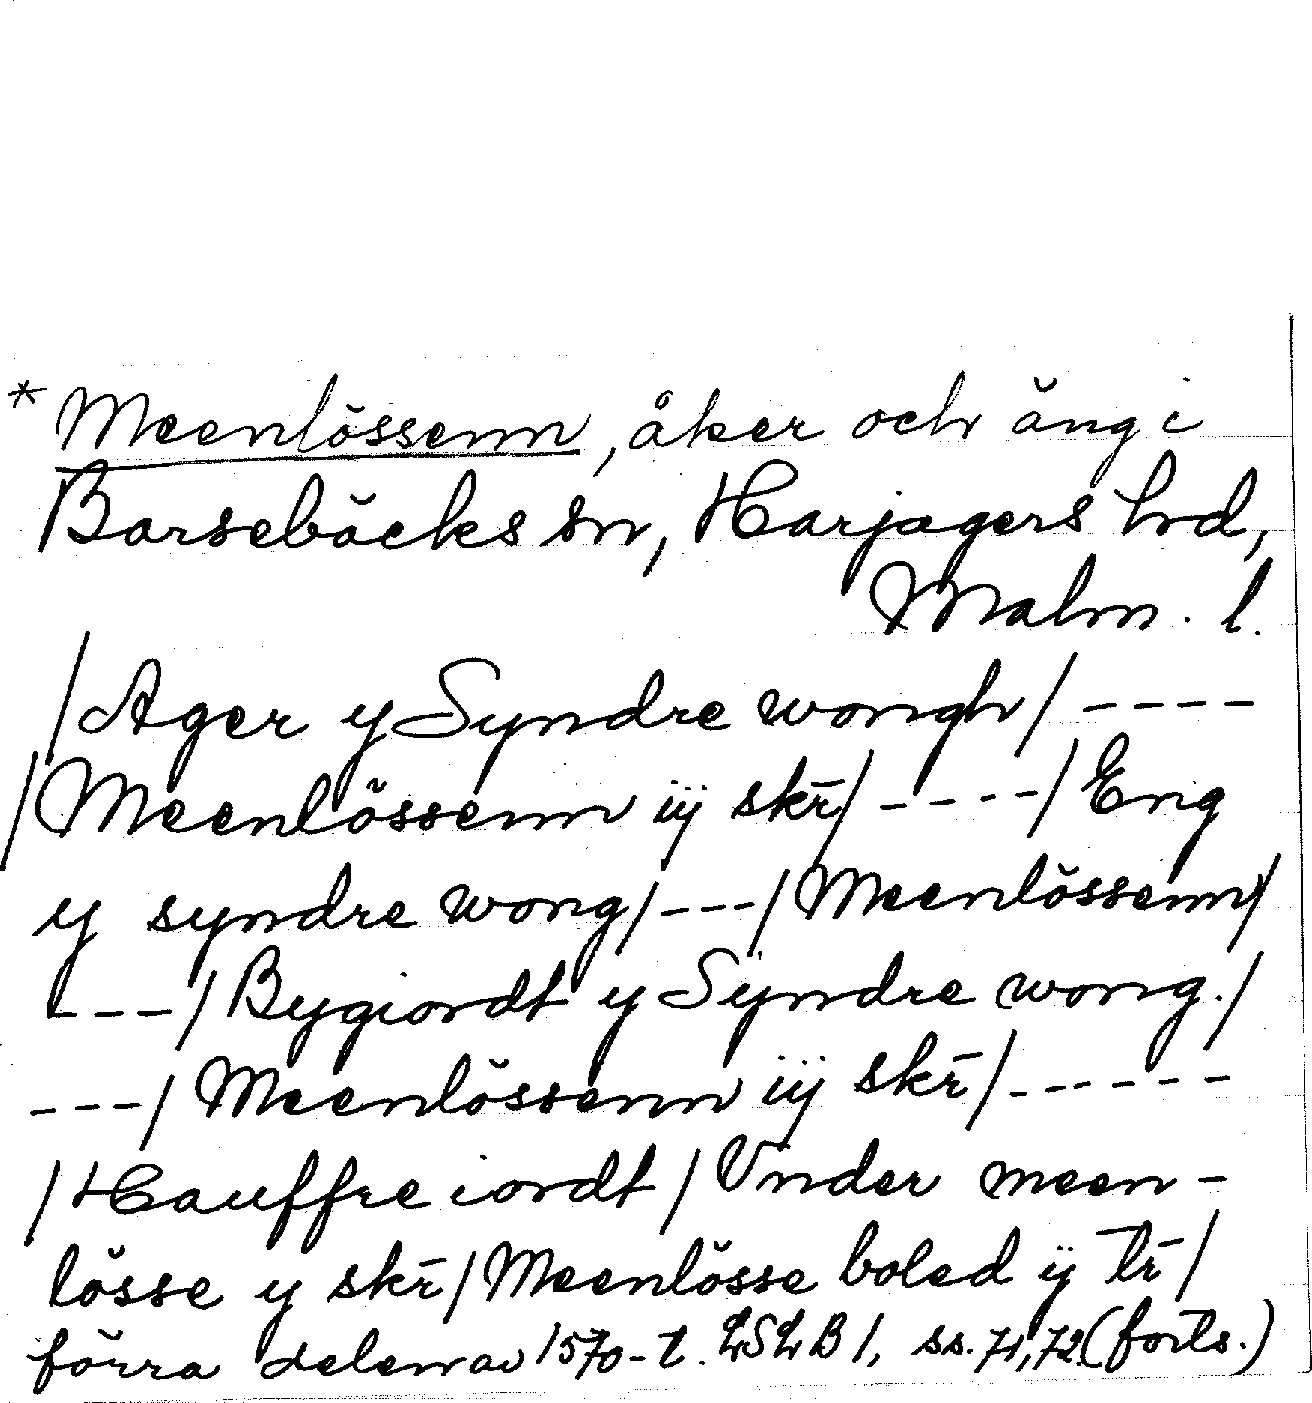 * Meenlössenn, åker och äng i
Barsebäcks sn, Harjagers hrd,
Malm. l.
/Ager y Syndre wongh/ ----
/Meenlössenn iij skr̄/ ----/ Eng
y syndre wong/ ---/ Meenlössenn/
---/ Bygiordt y Sÿndre wong./
---/ Meenlössenn iij skr̄/ ------
/Hauffre iordt/ Vnder meen-
lösse y skr̄/ Meenlösse boled ÿ tr̄/
förra delen av 1570-t. LSLB 1, ss. 71, 72 (forts.)